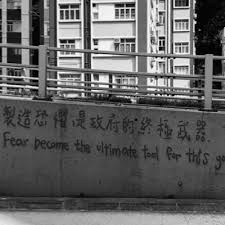 製造恐懼是政府的終極武器.
Fear become the ultimate tool for this go